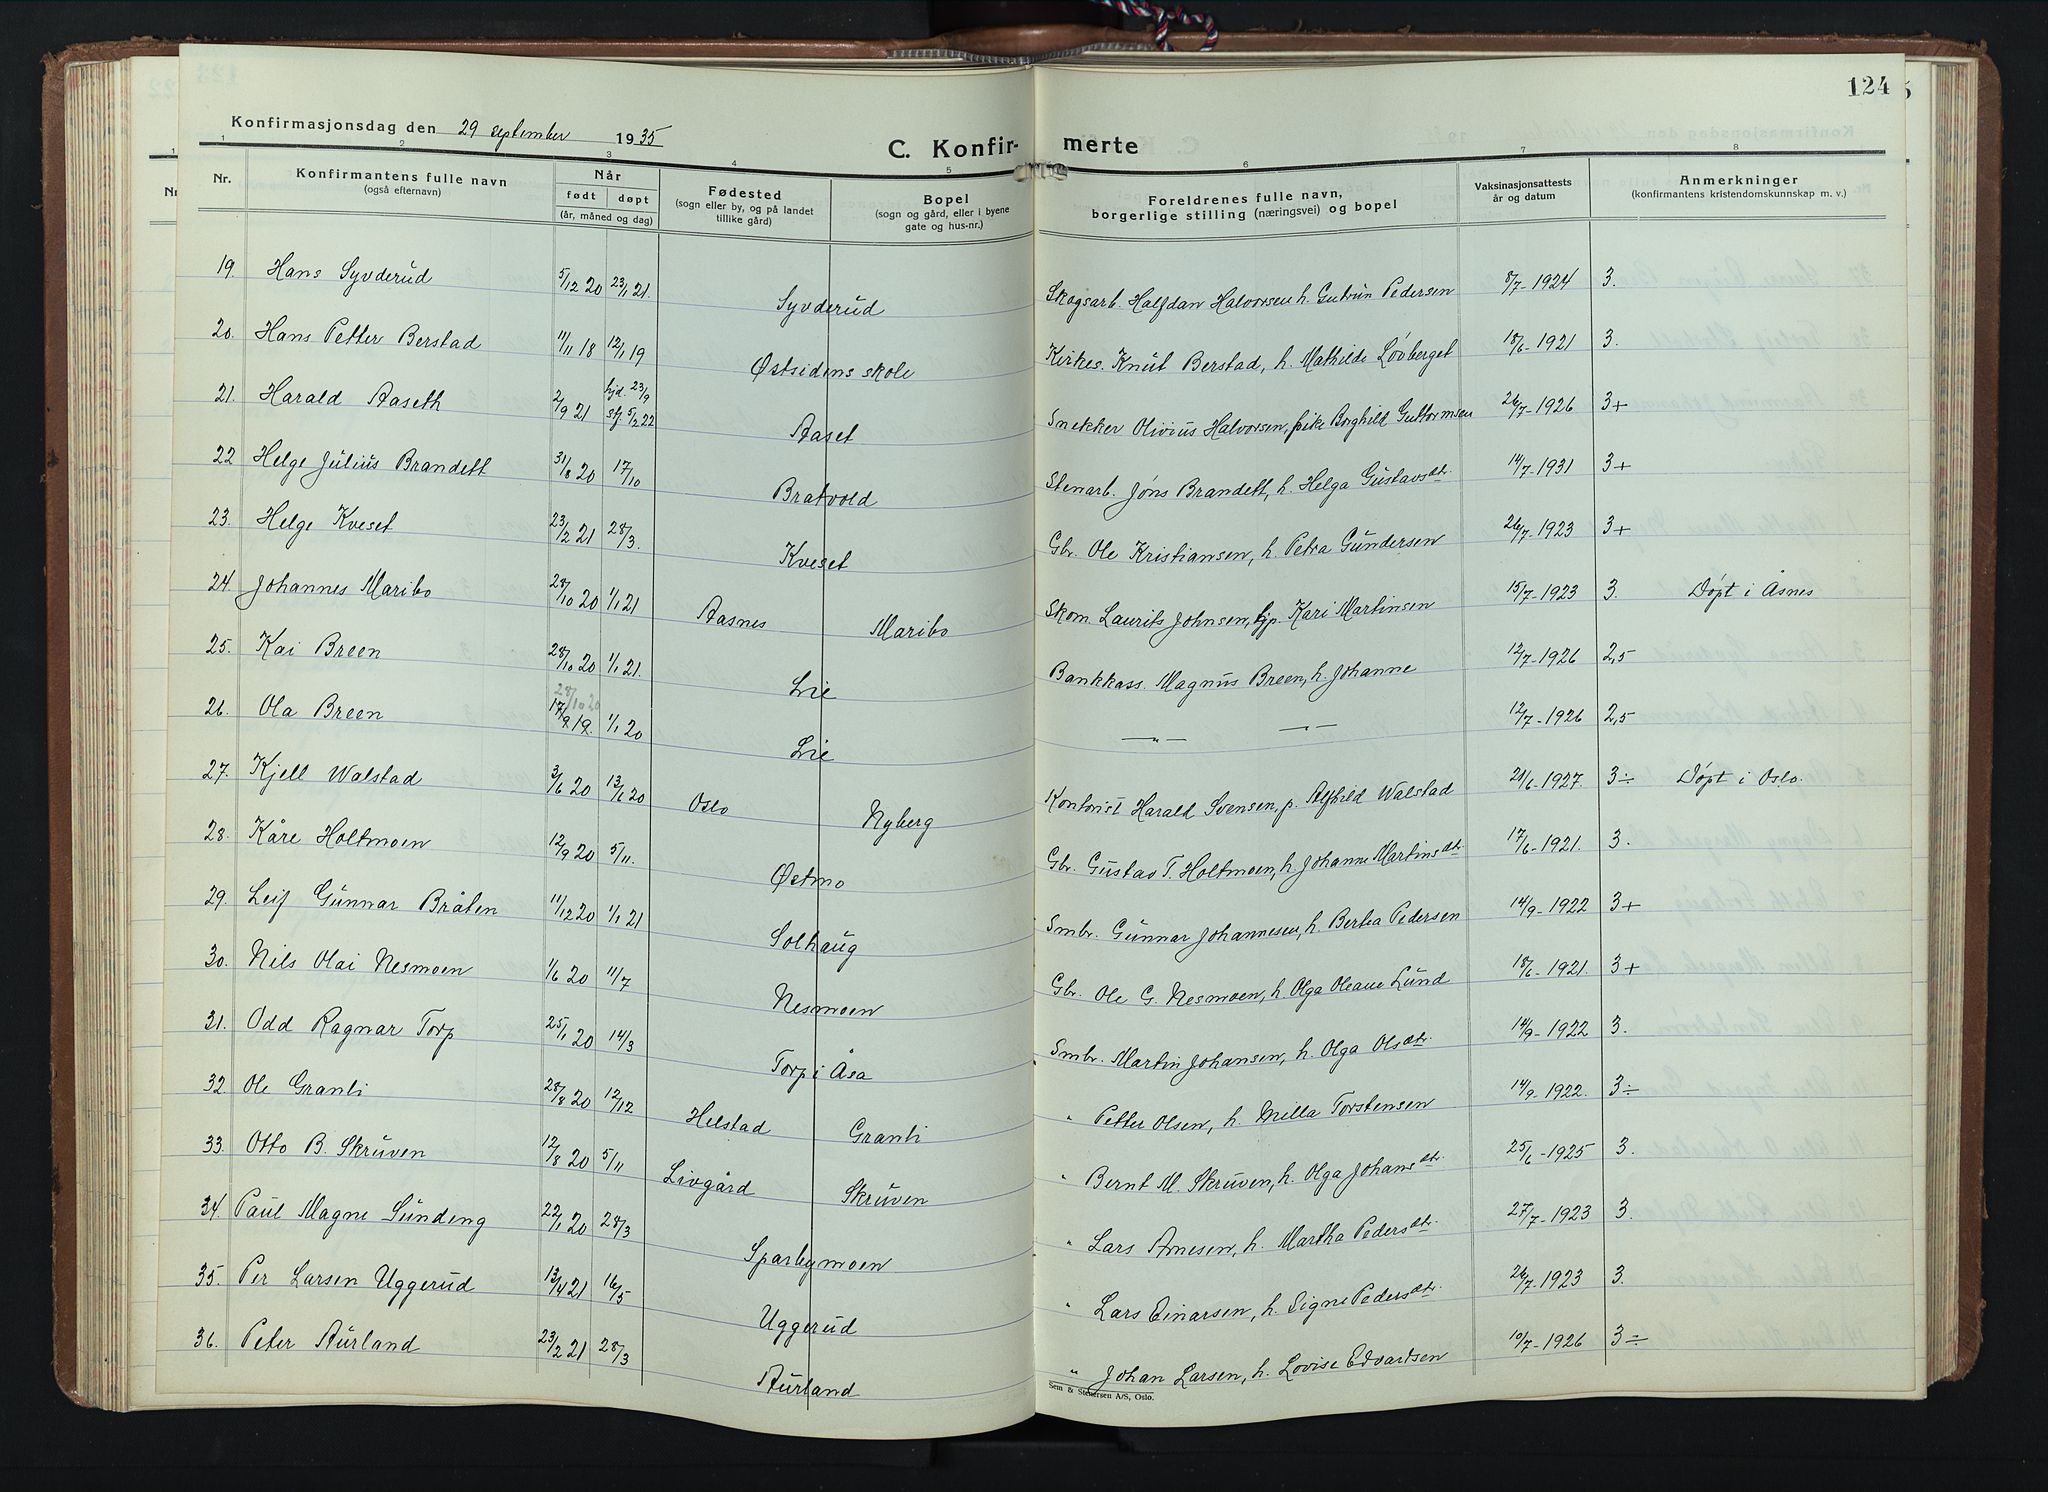 124
Konfirmasjonsdag den 29 september 1935
C. Konfirmerte
1 2 3 4 5 6 7 8
Nr. Konfirmantens fulle navn (også efternavn) Når født døpt (år, måned og dag) Fødested (sogn eller by, og på landet tillike gård) Bopel (sogn og gård, eller i byene gate og hus-nr.) Foreldrenes fulle navn, borgerlige stilling (næringsvei) og bopel Vaksinasjonsattests år og datum Anmerkninger (konfirmantens kristendomskunnskap m. v.)
19. Hans Syverud 5/12 20 23/1 21. Syverud Skogsarb. Halfdan Halvorsen h. Gudrun Pedersen 8/7 - 1924 3.
20. Hans Petter Berstad 11/11 18 12/1 19 Østsidens skole Kirkes. Knut Berstad, h. Mathilde Løvberget 18/6 - 1921 3.
21. Harald Aaseth 2/9 21 hjd. 23/9 stf 5/2 22 Aaset Snekker Olivius Halvorsen, pike Borghild Guttormsen 26/7 - 1926 3+
22 Helge Julius Brandett 31/8 20 17/10 Bratvold Stenarb. Jøns Brandett, h. Helga Gustavsdtr. 14/7 - 1931 3+
23. Helge Kveset 23/2 21 28/3. Kveset Gbr. Ole Kristiansen, h. Petra Gundersen 26/7 - 1923 3+
24. Johannes Maribo 28/10 20 1/1 21 Aasnes Maribo Skom. Laurits Johnsen, hjp. Kari Martinsen 15/7 - 1923 3. Døpt i Åsnes
25. Kai Breen 28/10 20 1/1 21. Lie Bankkass. Magnus Breen, h. Johanne 12/7 - 1926 2,5
26. Ola Breen 28/10 20 17/9 19. 1/1 20 Lie — " — — " — 12/7 - 1926 2,5
27. Kjell Walstad 3/6 20 13/6 20 Oslo Nyberg Kontorist Harald Svensen, p. Alfhild Walstad 21/6 - 1927. 3÷ Døpt i Oslo.
28. Kåre Holtmoen 12/9 20 5/11. Østmo Gbr. Gustav T. Holtmoen, h Johanne Martinsdtr. 17/6 - 1921. 3.
29. Leif Gunnar Bråten 11/12 20 1/1 21 Solhaug Smbr. Gunnar Johannesen, h. Bertea Pedersen 14/9 - 1922 3+
30. Nils Olai Nesmoen 1/6 20 11/7 Nesmoen Gbr. Ole G. Nesmoen, h. Olga Oleane Lund 18/6 - 1921. 3+
31. Odd Ragnar Torp 25/1 20 14/3 Torp i Åsa Smbr. Martin Johansen, h. Olga Olsdtr. 14/9 - 1922 3.
32. Ole Granli 28/8 20 12/12 Helstad Granli " Petter Olsen, h. Milla Torstensen 14/9 - 1922. 3÷
33. Otto B. Skruven 12/8 20 5/11 Livgård Skruven " Bernt M. Skruven, h. Olga Johansdtr. 25/6 - 1925 3.
34. Paul Magne Sunding 22/1 20 28/3 Sparbymoen " Lars Arnesen, h. Martha Pedersdtr. 27/7 - 1923 3.
35. Per Larsen Uggerud 13/4 21 16/5 Uggerud " Lars Einarsen, h. Signe Pedersdtr. 26/7 - 1923 3.
36. Peter Aurland 23/2 21 28/3 Aurland " Johan Larsen, h. Lovise Edvartsen 10/7 - 1926 3÷
Sem & Stenersen A/S, Oslo.